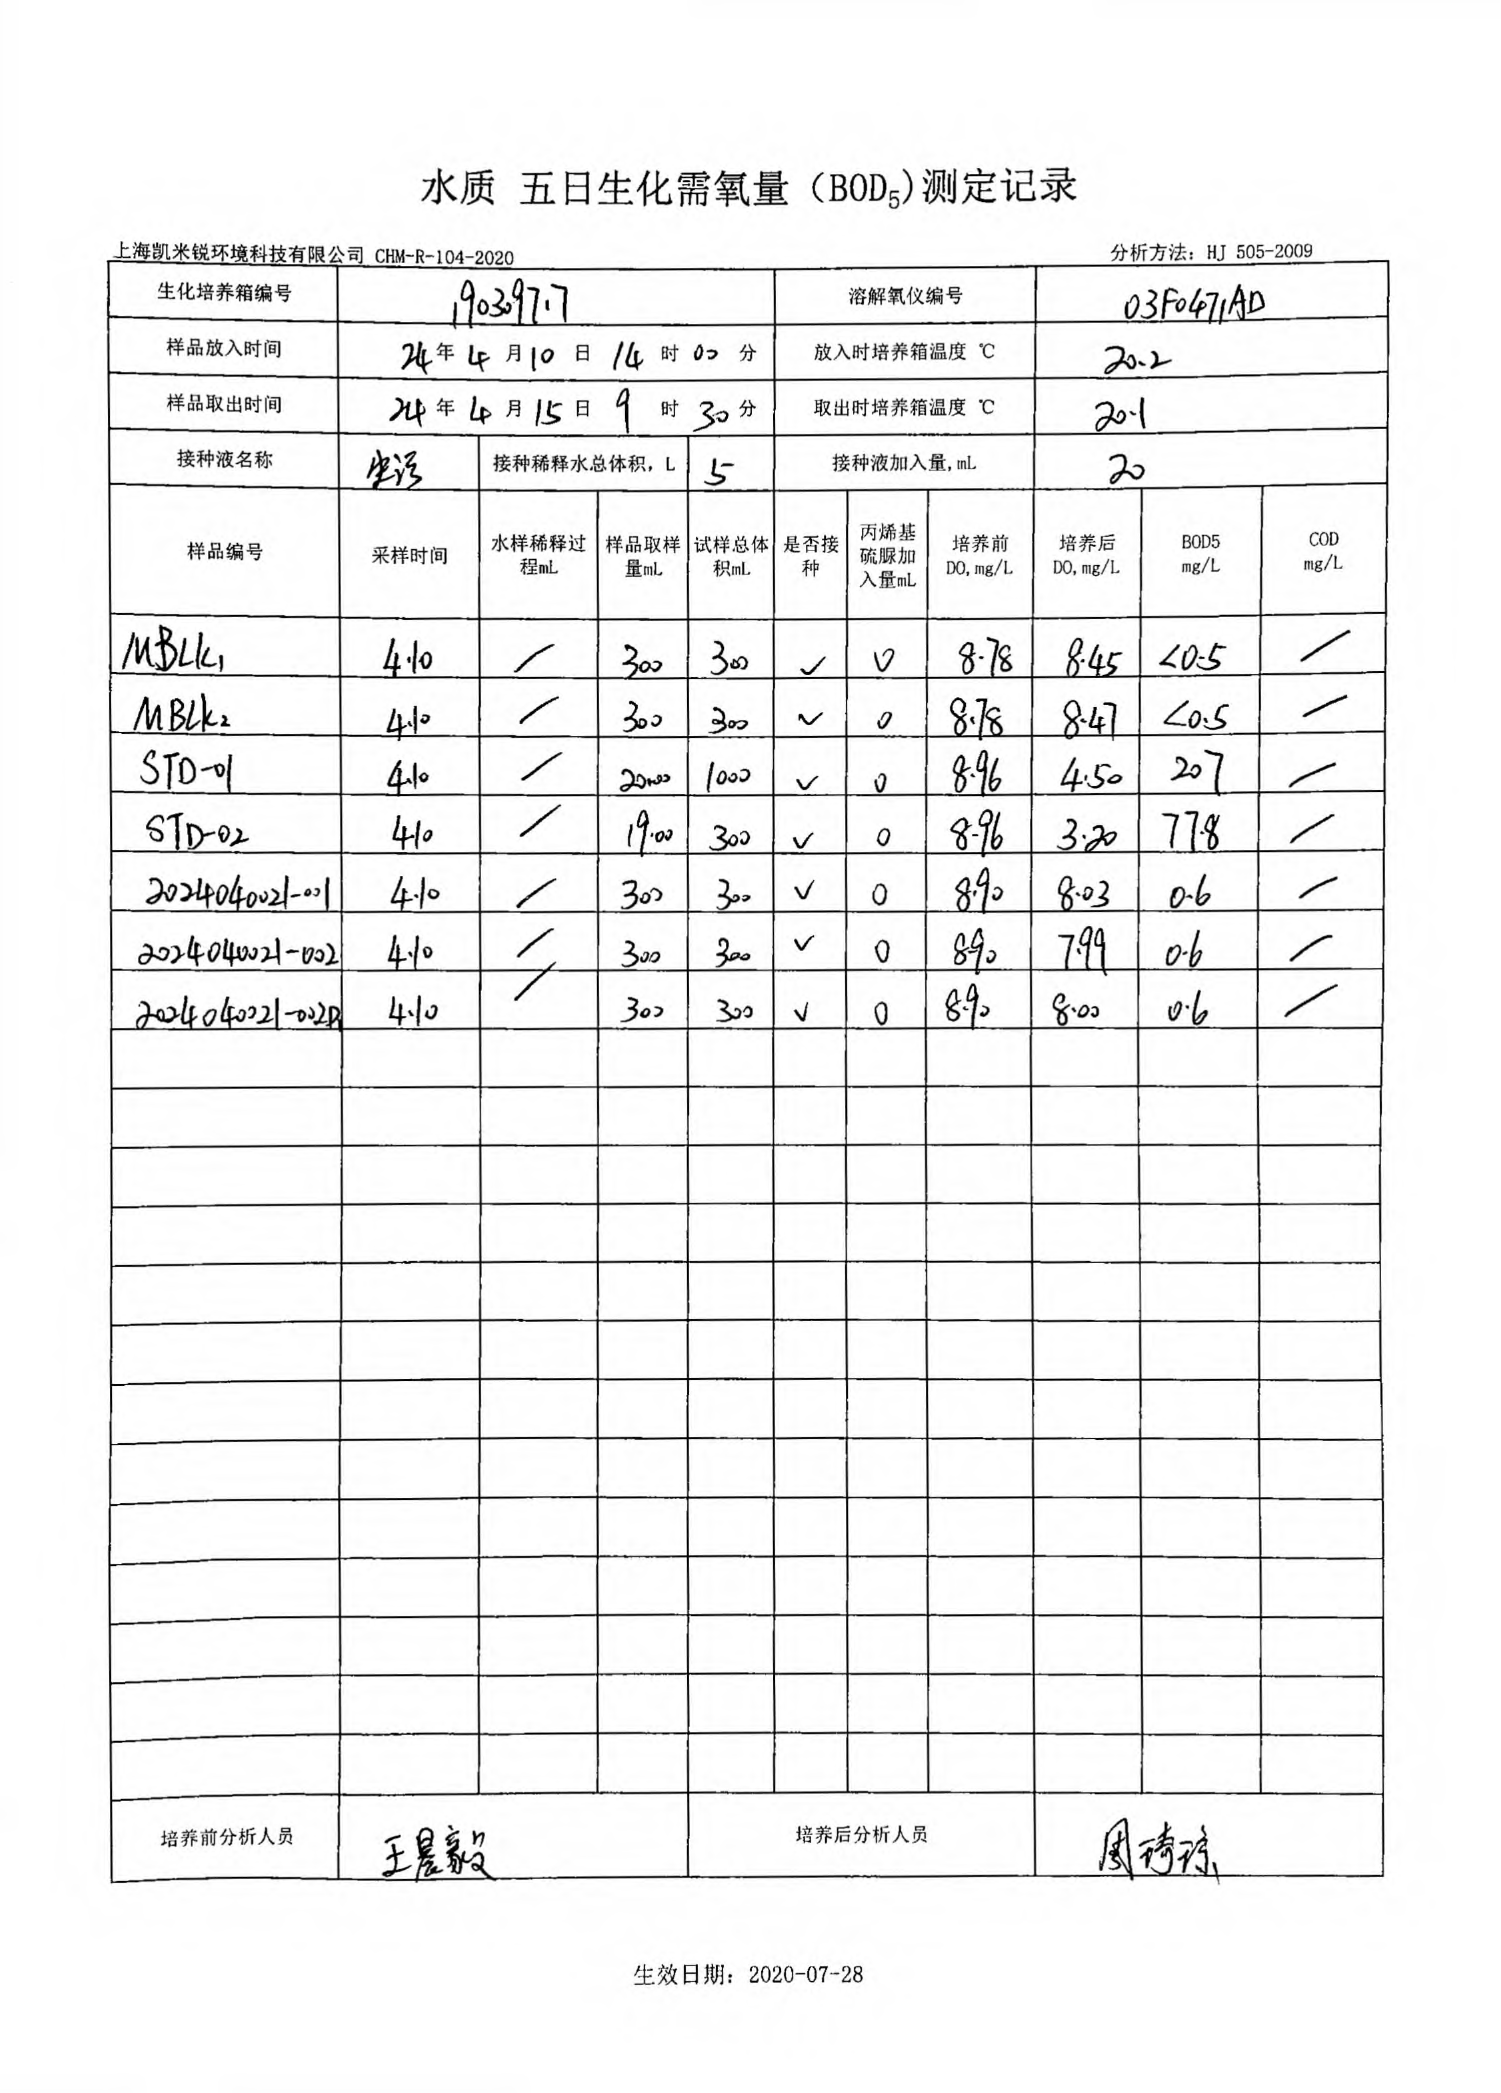 水质 五日生化需氧量（BOD5)测定记录
上海凯米锐环境科技有限公司 CHM-R-104-2020 分析方法: HJ 505-2009
生化培养箱编号 溶解氧仪编号 03F0471AD
样品放入时间 24年4月10日14时00分 放入时培养箱温度 ℃ 20.2
样品取出时间 24年4月15日9时30分 取出时培养箱温度 ℃ 20.1
接种液名称 生污 接种稀释水总体积, L 5 接种液加入量,mL 20
样品编号 采样时间 水样稀释过程mL 样品取样量mL 试样总体积mL 是否接种 丙烯基硫脲加入量mL 培养前DO,mg/L 培养后DO,mg/L BOD5 mg/L COD mg/L
MBLK1 4.10 / 300 300 ✓ 0 8.78 8.45 <0.5 /
MBLK2 4.10 / 300 300 ✓ 0 8.78 8.47 <0.5 /
STD-01 4.10 / 20.00 1000 ✓ 0 8.96 4.50 207 /
STD-02 4.10 / 19.00 300 ✓ 0 8.96 3.20 77.8 /
2024040021-001 4.10 / 300 300 ✓ 0 8.90 8.03 0.6 /
2024040021-002 4.10 / 300 300 ✓ 0 8.90 7.99 0.6 /
2024040021-002P 4.10 / 300 300 ✓ 0 8.90 8.00 0.6 /
培养前分析人员 王晨毅 培养后分析人员 周琦琼
生效日期: 2020-07-28